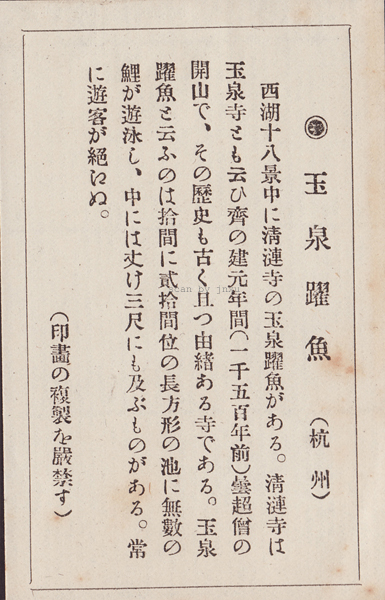 玉泉躍魚（杭州）
西湖十八景中に淸漣寺の玉泉躍魚がある。淸漣寺は
玉泉寺とも云ひ齊の建元年間（一千五百年前）曇超僧の
開山で、その歷史も古く且つ由緖ある寺である。玉泉
躍魚と云ふのは拾間に貳拾間位の長方形の池に無數の
鯉が遊泳し、中には丈け三尺にも及ぶものがある。常
に遊客が絕いぬ。
（印畵の複製を嚴禁す）
scan by